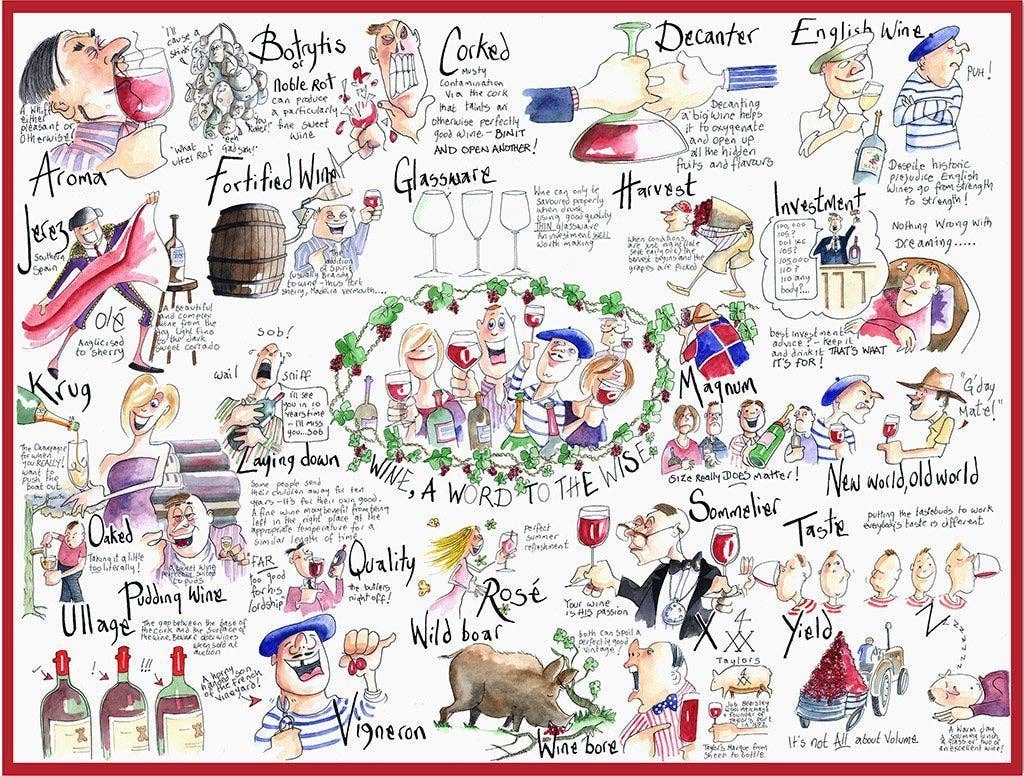 "I'll
cause a
stink"
Botrytis
or
Noble Rot
can produce
a particularly
fine sweet
wine.
"You
"What
utter Rot"
"eh
Gadson!"
A whiff
either
pleasant or
otherwise!
Aroma
Corked
Musty
contamination
via the cork
that taints an
otherwise perfectly
good wine - BIN IT
AND OPEN ANOTHER!
Decanter
Decanting
a big wine helps
it to oxygenate
and open up
all the hidden
fruits and flavours
English Wine
PUH!
Despite historic
prejudice English
wines go from strength
to strength!
Jerez
Southern
Spain
Olé
Anglicised
to 'sherry
A beautiful
and complex
wine from the
light fino
to the dark
sweet
Fortified Wine
The
addition
of spirit
(usually brandy)
to wine - thus Port
sherry, Madeira vermouth....
Glassware
Wine can only be
savoured properly
when drunk
using good quality
THIN glassware
An investment WELL
worth making
Harvest
When conditions
are just right (late
the
harvest begins and the
grapes are picked
Investment
100,000
105?
105?
105,000
110?
110 any
body?...
Nothing wrong with
Dreaming.....
best investment
advice! - keep it
and drink it THAT'S WHAT
IT'S FOR!
Krug
The Champagne
for when
you REALLY!
want to
push the
boat out
Sob!
wail
sniff
I'll see
you in 10
years time
- I'll miss
you...sob
Laying down
Some people send
their children away for ten
years - it's for their own good.
A fine wine may benefit from being
left in the right place at the
appropriate temperature for a
similar length of time.
WINE, A WORD TO THE WISE
Magnum
Size Really DOES matter!
"G'day
Mate!"
New world, old world
Oaked
Taking it a little
too literally!
A sweet wine
perfectly suited
to puds
Pudding Wine
FAR
too good
for his
lordship"
Quality
the butlers
night off!
perfect
summer
refreshment
Rosé
Sommelier
Your wine
is HIS passion
Taste
putting the tastebuds to work
everybody's taste is different
Ullage
The gap between the base of
the cork and the surface of
the wine, Beware of
when sold at
auction
!
!!!
A horny
handed son
of the French
vineyard!
Vigneron
Wild boar
both can spoil a
perfectly good
vintage!
Wine bore
X
Taylors
Job Bearsley
wool merchant
founder of
Taylor's Port
Taylor's Marque from
sheep to bottle.
Yield
It's not All about Volume
Z
zzzzz
A warm day,
a
glass or two of
an excellent wine!